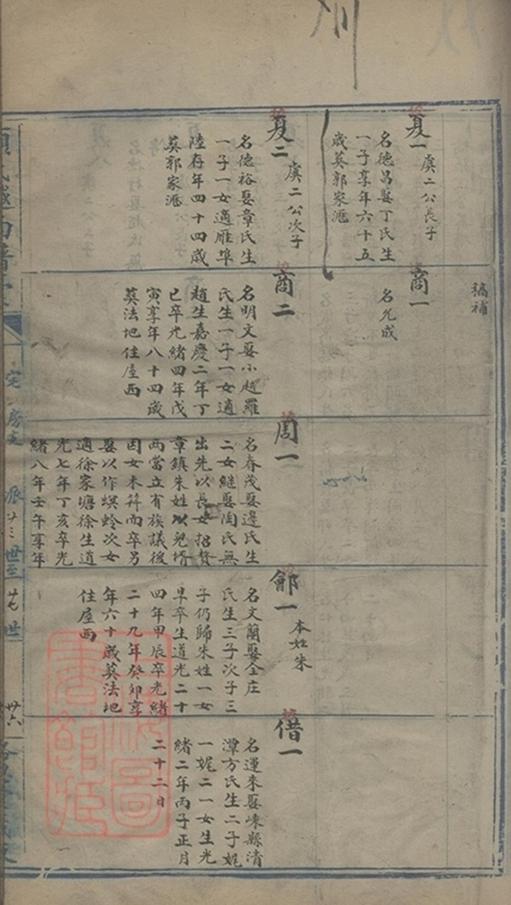 夏一
虞二公長子
名德昌娶丁氏生
一子享年六十五
歲葬郭家滙
夏二
虞二公次子
名德裕娶章氏生
一子一女適雁埠
陸存年四十四歲
葬郭家滙
稿補
商一
名允成
商二
名明文娶小趙羅
氏生一子一女適
趙生嘉慶二年丁
巳卒光緒四年戊
寅享年八十四歲
葬法地住屋西
周一
名春茂娶邊氏生
二女繼娶陶氏無
出先以長女招贅
章鎮朱姓以兒壻
兩當立有族議後
因女未葬而卒另
娶以作螟蛉次女
適徐家塘徐生道
光七年丁亥卒光
緒八年壬午享年
鄃一
本姓朱
名文蘭娶全庄
氏生三子次子三
子仍歸朱姓一女
早卒生道光二十
四年甲辰卒光緒
二十九年癸卯享
年六十歲葬法地
住屋西
借一
名運來娶嵊縣清
潭方氏生二子妮
一妮二一女生光
緒二年丙子正月
二十二日